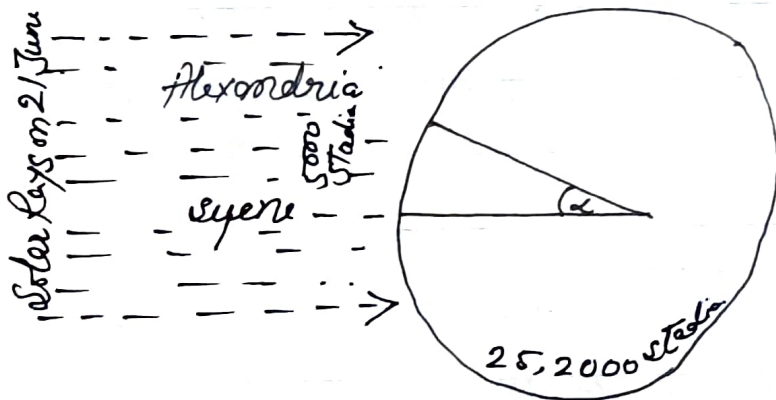 Solar Rays on 21 June
Alexandria
5000
Stadia
syene
α
25,2000 stadia